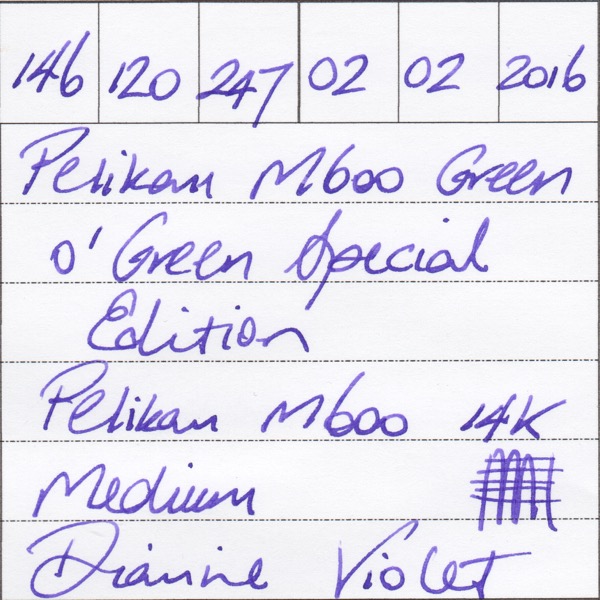 146 120 247 02 02 2016
Pelikan M600 Green
o' Green Special
Edition
Pelikan M600 14K
Medium
Diamine Violet